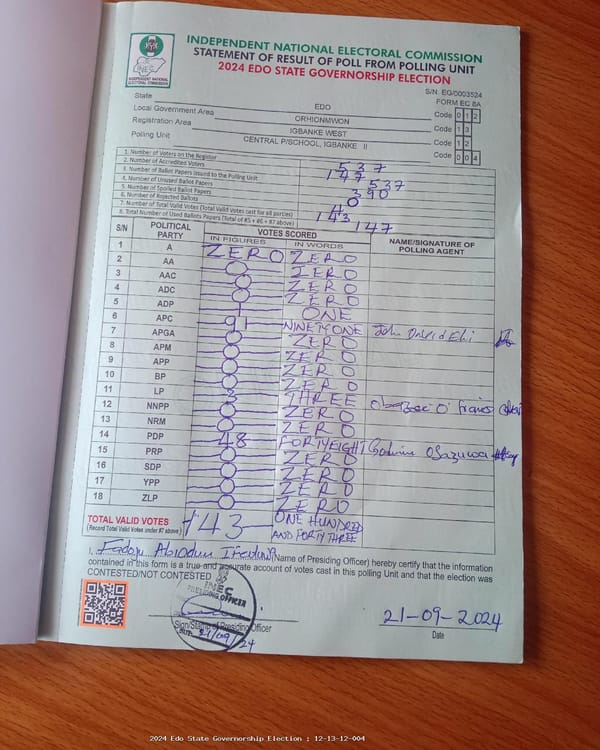 INDEPENDENT NATIONAL ELECTORAL COMMISSION
STATEMENT OF RESULT OF POLL FROM POLLING UNIT
2024 EDO STATE GOVERNORSHIP ELECTION
INEC
INDEPENDENT NATIONAL
ELECTORAL COMMISSION
S/N: EG/0003524
FORM EC 8A
State EDO Code 0 1 2
Local Government Area ORHIONMWON Code 1 3
Registration Area IGBANKE WEST Code 1 2
Polling Unit CENTRAL P/SCHOOL, IGBANKE II Code 0 0 4
1. Number of Voters on the Register 537
2. Number of Accredited Voters 147
3. Number of Ballot Papers Issued to the Polling Unit 537
4. Number of Unused Ballot Papers 390
5. Number of Spoiled Ballot Papers 0
6. Number of Rejected Ballots 4
7. Number of Total Valid Votes (Total Valid Votes cast for all parties) 143
8. Total Number of Used Ballots Papers (Total of #5 + #6 + #7 above) 147
S/N POLITICAL PARTY VOTES SCORED NAME/SIGNATURE OF POLLING AGENT
IN FIGURES IN WORDS
1 A ZERO ZERO
2 AA 0 ZERO
3 AAC 0 ZERO
4 ADC 0 ZERO
5 ADP 1 ONE
6 APC 91 NINETYONE John David Ehi
7 APGA 0 ZERO
8 APM 0 ZERO
9 APP 0 ZERO
10 BP 0 ZERO
11 LP 3 THREE
12 NNPP 0 ZERO
13 NRM 0 ZERO
14 PDP 48 FORTYEIGHT Godwin Osazuwa
15 PRP 0 ZERO
16 SDP 0 ZERO
17 YPP 0 ZERO
18 ZLP 0 ZERO
TOTAL VALID VOTES 143 ONE HUNDRED
(Record Total Valid Votes under #7 above) AND FORTY THREE
I, Abiodun (Name of Presiding Officer) hereby certify that the information
contained in this form is a true and accurate account of votes cast in this polling Unit and that the election was
CONTESTED/NOT CONTESTED
INEC
PRESIDING OFFICER
DATE 21/09/24
Sign/Stamp of Presiding Officer
21-09-2024
Date
2024 Edo State Governorship Election : 12-13-12-004